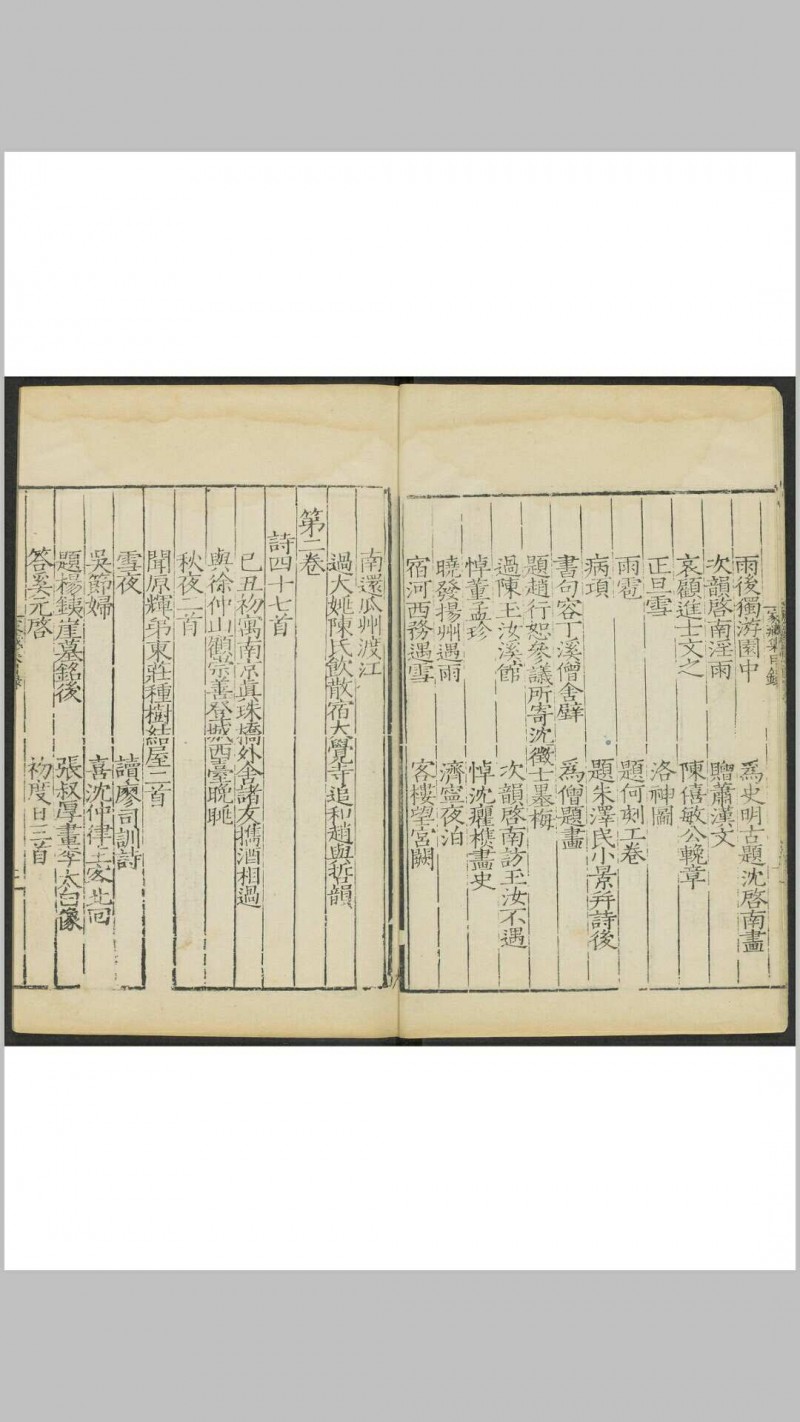 雨後獨游園中 為史明古題沈啓南畫
次韻啓南淫雨 贈蕭漢文
哀顧進士文之 陳僖敏公輓章
正旦雪 洛神圖
雨雹 題何刻工卷
病項 題朱澤民小景并詩後
書句容丁溪僧舍壁 為僧題畫
題趙行恕參議所寄沈徵士墨梅
過陳玉汝溪館 次韻啓南訪玉汝不遇
悼董孟珍 悼沈臞樵畫史
曉發揚州遇雨 濟寧夜泊
宿河西務遇雪 客樓望宮闕
南還瓜州渡江
過大姚陳氏飲散宿大覺寺追和趙與哲韻
第二卷
詩四十七首
己丑初寓南京真珠橋外舍諸友攜酒相過
與徐仲山觀崇善登城西臺晚眺
秋夜二首
聞原輝弟東莊種樹結屋二首
雪夜 讀廖司訓詩
吳節婦 喜沈仲律主客北回
題楊鐵崖墓銘後 張叔厚畫李太白像
答奚元啓 初度日三首